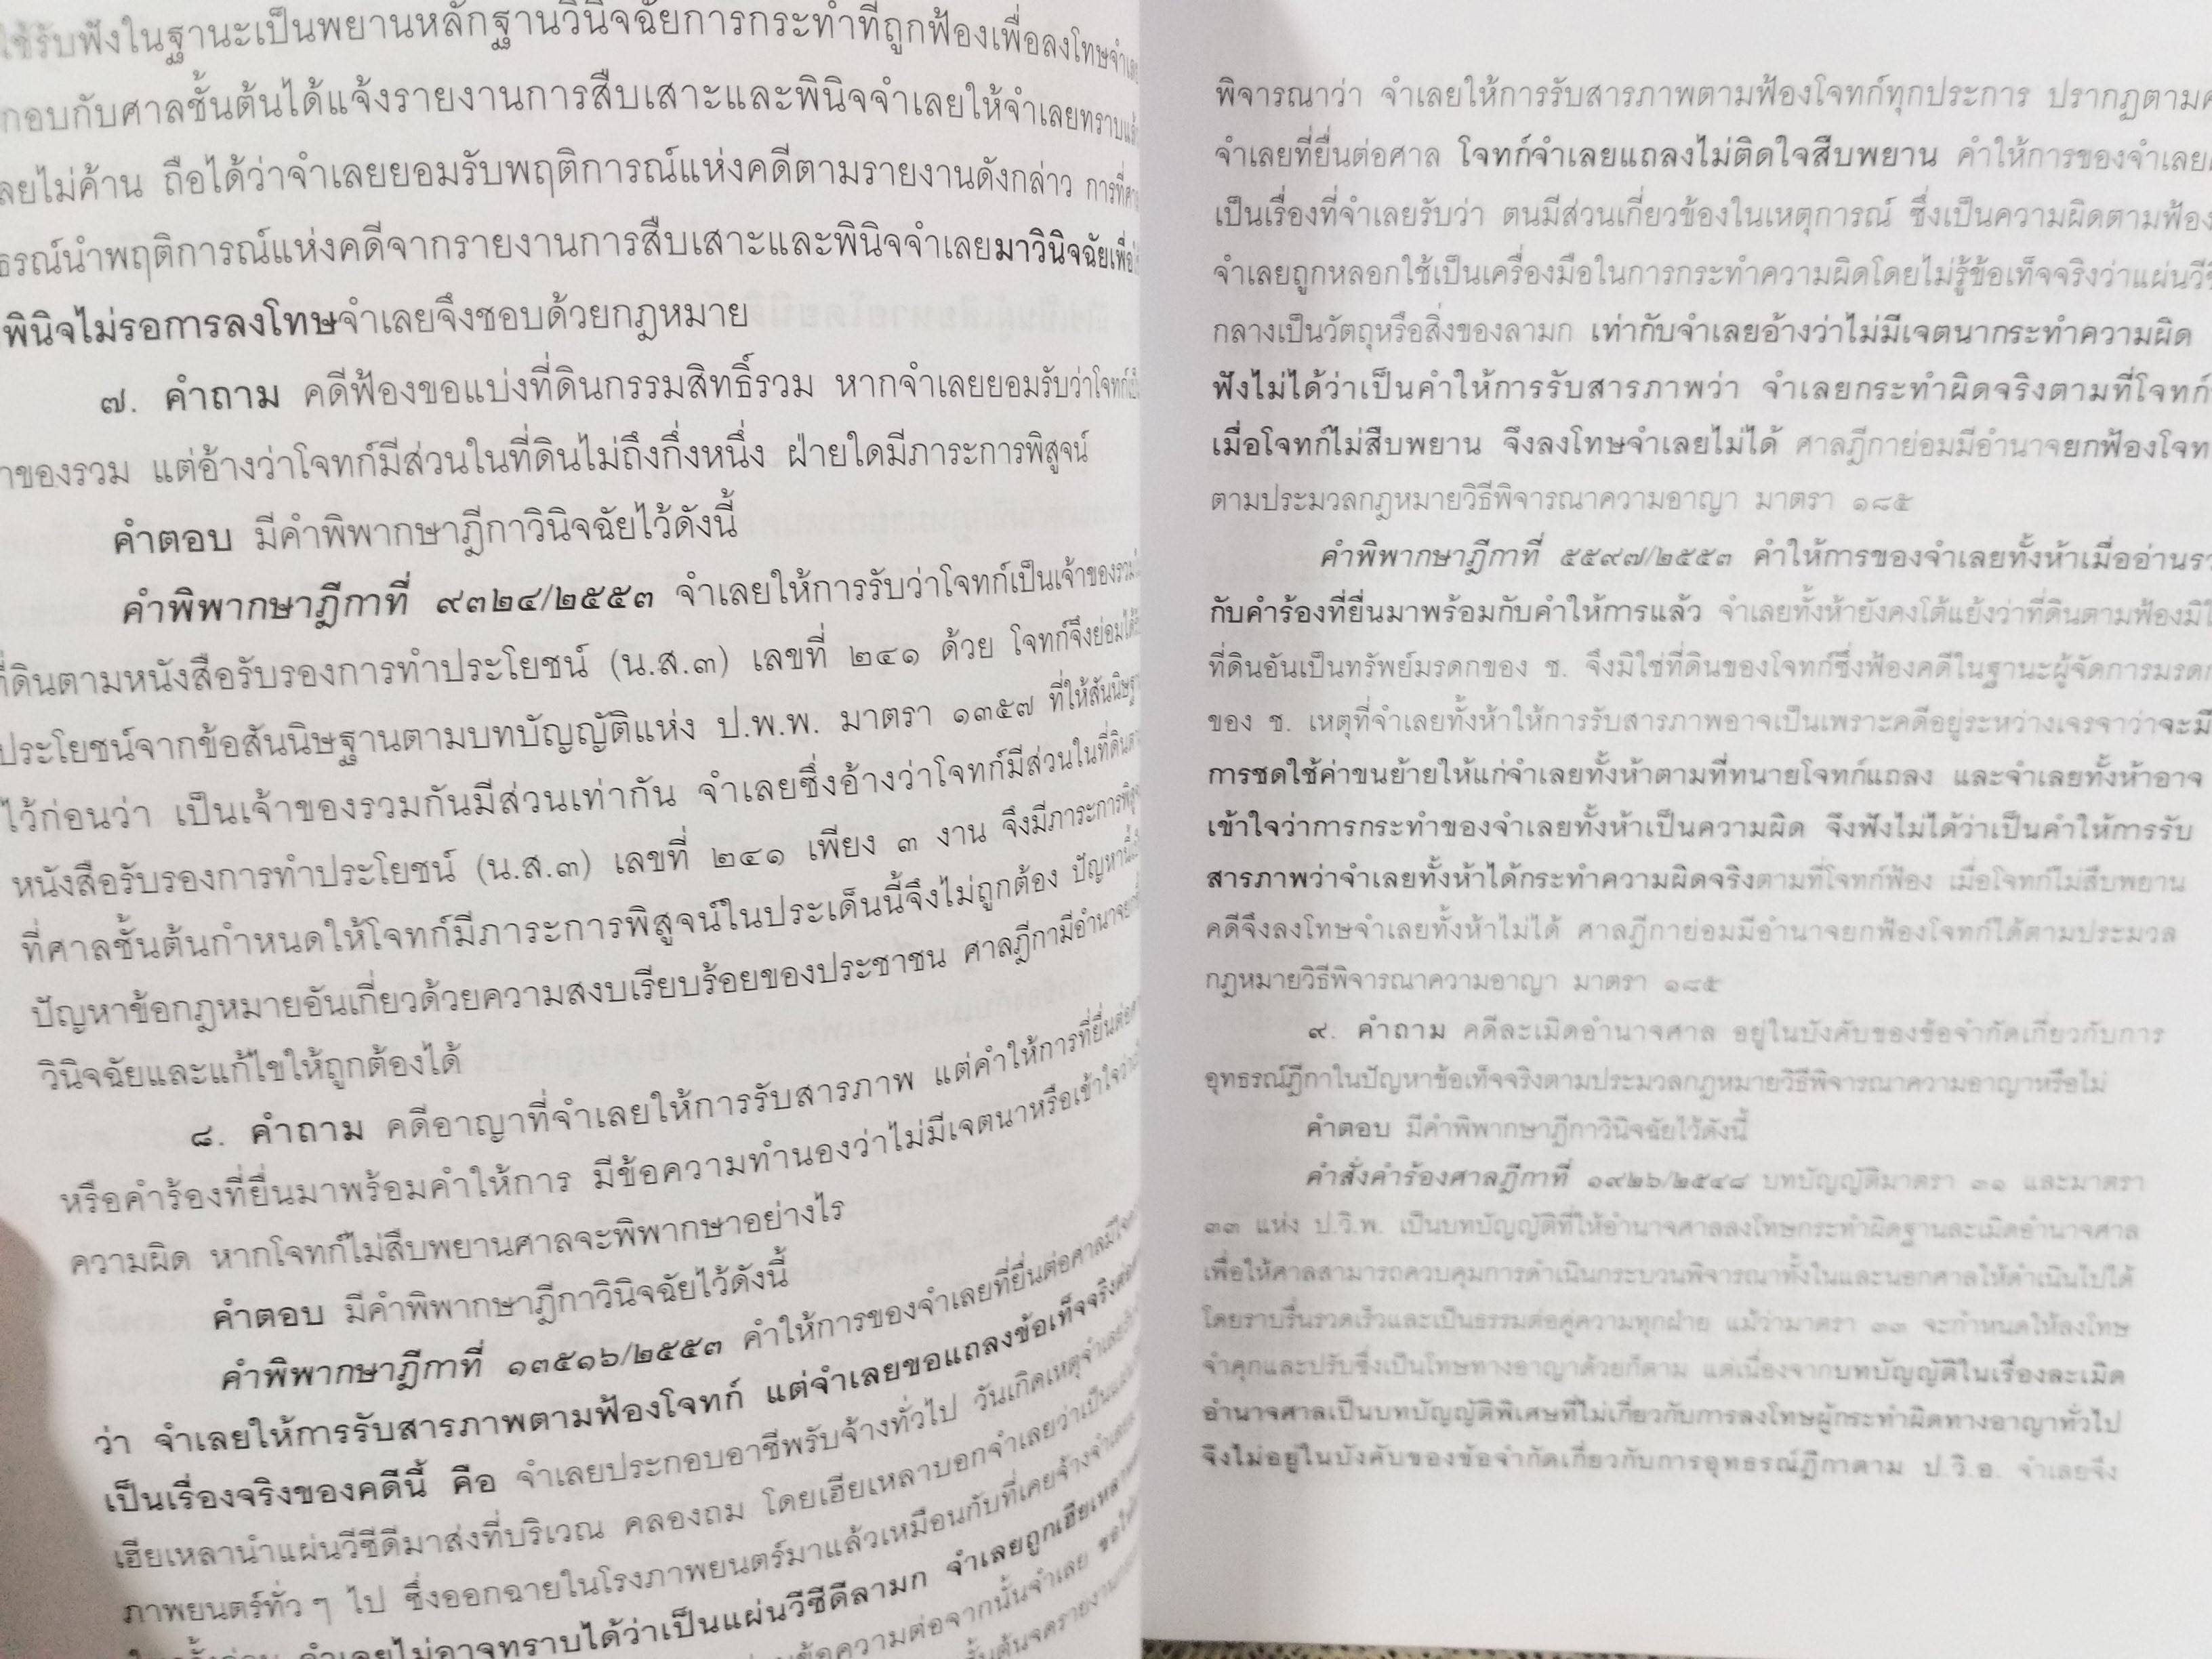 ใช้รับฟังในฐานะเป็นพยานหลักฐานวินิจฉัยการกระทำที่ถูกฟ้องเพื่อลงโทษ
กอบกับศาลชั้นต้นได้แจ้งรายงานการสืบเสาะและพินิจจำเลยให้จำเลยทราบแล้ว
ลยไม่ค้าน ถือได้ว่าจำเลยยอมรับพฤติการณ์แห่งคดีตามรายงานดังกล่าว การที่ศาล
ธรณ์นำพฤติการณ์แห่งคดีจากรายงานการสืบเสาะและพินิจจำเลยมาวินิจฉัย
พินิจไม่รอการลงโทษจำเลยจึงชอบด้วยกฎหมาย
๗. คำถาม คดีฟ้องขอแบ่งที่ดินกรรมสิทธิ์รวม หากจำเลยยอมรับว่าโจทก์
าของรวม แต่อ้างว่าโจทก์มีส่วนในที่ดินไม่ถึงกึ่งหนึ่ง ฝ่ายใดมีภาระการพิสูจน์
คำตอบ มีคำพิพากษาฎีกาวินิจฉัยไว้ดังนี้
คำพิพากษาฎีกาที่ ๙๓๒๔/๒๕๕๓ จำเลยให้การรับว่าโจทก์เป็นเจ้าของรวม
ที่ดินตามหนังสือรับรองการทำประโยชน์ (น.ส.๓) เลขที่ ๒๔๑ ด้วย โจทก์จึงย่อมได้
ประโยชน์จากข้อสันนิษฐานตามบทบัญญัติแห่ง ป.พ.พ. มาตรา ๑๓๕๗ ที่ให้สันนิษฐาน
ไว้ก่อนว่า เป็นเจ้าของรวมกันมีส่วนเท่ากัน จำเลยซึ่งอ้างว่าโจทก์มีส่วนในที่ดิน
หนังสือรับรองการทำประโยชน์ (น.ส.๓) เลขที่ ๒๔๑ เพียง ๓ งาน จึงมีภาระการพิสูจน์
ที่ศาลชั้นต้นกำหนดให้โจทก์มีภาระการพิสูจน์ในประเด็นนี้จึงไม่ถูกต้อง ปัญหานี้
ปัญหาข้อกฎหมายอันเกี่ยวด้วยความสงบเรียบร้อยของประชาชน ศาลฎีกามีอำนาจ
วินิจฉัยและแก้ไขให้ถูกต้องได้
๘. คำถาม คดีอาญาที่จำเลยให้การรับสารภาพ แต่คำให้การที่ยื่นต่อ
หรือคำร้องที่ยื่นมาพร้อมคำให้การ มีข้อความทำนองว่าไม่มีเจตนาหรือเข้าใจว่า
ความผิด หากโจทก์ไม่สืบพยานศาลจะพิพากษาอย่างไร
คำตอบ มีคำพิพากษาฎีกาวินิจฉัยไว้ดังนี้
คำพิพากษาฎีกาที่ ๑๓๕๑๖/๒๕๕๓ คำให้การของจำเลยที่ยื่นต่อศาลมีใจความ
ว่า จำเลยให้การรับสารภาพตามฟ้องโจทก์ แต่จำเลยขอแถลงข้อเท็จจริง
เป็นเรื่องจริงของคดีนี้ คือ จำเลยประกอบอาชีพรับจ้างทั่วไป วันเกิดเหตุจำเลย
เฮียเหลานำแผ่นวีซีดีมาส่งที่บริเวณ คลองถม โดยเฮียเหลาบอกจำเลยว่าเป็นแผ่น
ภาพยนตร์ทั่ว ๆ ไป ซึ่งออกฉายในโรงภาพยนตร์มาแล้วเหมือนกับที่เคยจ้างจำเลย
จำเลยไม่อาจทราบได้ว่าเป็นแผ่นวีซีดีลามก จำเลยถูกเฮียเหลา
ข้อความต่อจากนั้นจำเลย
พิจารณาว่า จำเลยให้การรับสารภาพตามฟ้องโจทก์ทุกประการ ปรากฏตาม
จำเลยที่ยื่นต่อศาล โจทก์จำเลยแถลงไม่ติดใจสืบพยาน คำให้การของจำเลย
เป็นเรื่องที่จำเลยรับว่า ตนมีส่วนเกี่ยวข้องในเหตุการณ์ ซึ่งเป็นความผิดตามฟ้อง
จำเลยถูกหลอกใช้เป็นเครื่องมือในการกระทำความผิดโดยไม่รู้ข้อเท็จจริงว่าแผ่นวีซี
กลางเป็นวัตถุหรือสิ่งของลามก เท่ากับจำเลยอ้างว่าไม่มีเจตนากระทำความผิด
ฟังไม่ได้ว่าเป็นคำให้การรับสารภาพว่า จำเลยกระทำผิดจริงตามที่โจทก์
เมื่อโจทก์ไม่สืบพยาน จึงลงโทษจำเลยไม่ได้ ศาลฎีกาย่อมมีอำนาจยกฟ้องโจท
ตามประมวลกฎหมายวิธีพิจารณาความอาญา มาตรา ๑๘๕
คำพิพากษาฎีกาที่ ๕๕๙๗/๒๕๕๓ คำให้การของจำเลยทั้งห้าเมื่ออ่านรว
กับคำร้องที่ยื่นมาพร้อมกับคำให้การแล้ว จำเลยทั้งห้ายังคงโต้แย้งว่าที่ดินตามฟ้องมิใ
ที่ดินอันเป็นทรัพย์มรดกของ ช. จึงมิใช่ที่ดินของโจทก์ซึ่งฟ้องคดีในฐานะผู้จัดการมรดก
ของ ช. เหตุที่จำเลยทั้งห้าให้การรับสารภาพอาจเป็นเพราะคดีอยู่ระหว่างเจรจาว่าจะมี
การชดใช้ค่าขนย้ายให้แก่จำเลยทั้งห้าตามที่ทนายโจทก์แถลง และจำเลยทั้งห้าอาจ
เข้าใจว่าการกระทำของจำเลยทั้งห้าเป็นความผิด จึงฟังไม่ได้ว่าเป็นคำให้การรับ
สารภาพว่าจำเลยทั้งห้าได้กระทำความผิดจริงตามที่โจทก์ฟ้อง เมื่อโจทก์ไม่สืบพยาน
คดีจึงลงโทษจำเลยทั้งห้าไม่ได้ ศาลฎีกาย่อมมีอำนาจยกฟ้องโจทก์ได้ตามประมวล
กฎหมายวิธีพิจารณาความอาญา มาตรา ๑๘๕
๙. คำถาม คดีละเมิดอำนาจศาล อยู่ในบังคับของข้อจำกัดเกี่ยวกับการ
อุทธรณ์ฎีกาในปัญหาข้อเท็จจริงตามประมวลกฎหมายวิธีพิจารณาความอาญาหรือไม่
คำตอบ มีคำพิพากษาฎีกาวินิจฉัยไว้ดังนี้
คำสั่งคำร้องศาลฎีกาที่ ๑๙๒๖/๒๕๔๘ บทบัญญัติมาตรา ๓๑ และมาตรา
๓๓ แห่ง ป.วิ.พ. เป็นบทบัญญัติที่ให้อำนาจศาลลงโทษกระทำผิดฐานละเมิดอำนาจศาล
เพื่อให้ศาลสามารถควบคุมการดำเนินกระบวนพิจารณาทั้งในและนอกศาลให้ดำเนินไปได้
โดยราบรื่นรวดเร็วและเป็นธรรมต่อคู่ความทุกฝ่าย แม้ว่ามาตรา ๓๓ จะกำหนดให้ลงโทษ
จำคุกและปรับซึ่งเป็นโทษทางอาญาด้วยก็ตาม แต่เนื่องจากบทบัญญัติในเรื่องละเมิด
อำนาจศาลเป็นบทบัญญัติพิเศษที่ไม่เกี่ยวกับการลงโทษผู้กระทำผิดทางอาญาทั่วไป
จึงไม่อยู่ในบังคับของข้อจำกัดเกี่ยวกับการอุทธรณ์ฎีกาตาม ป.วิ.อ. จำเลยจึง